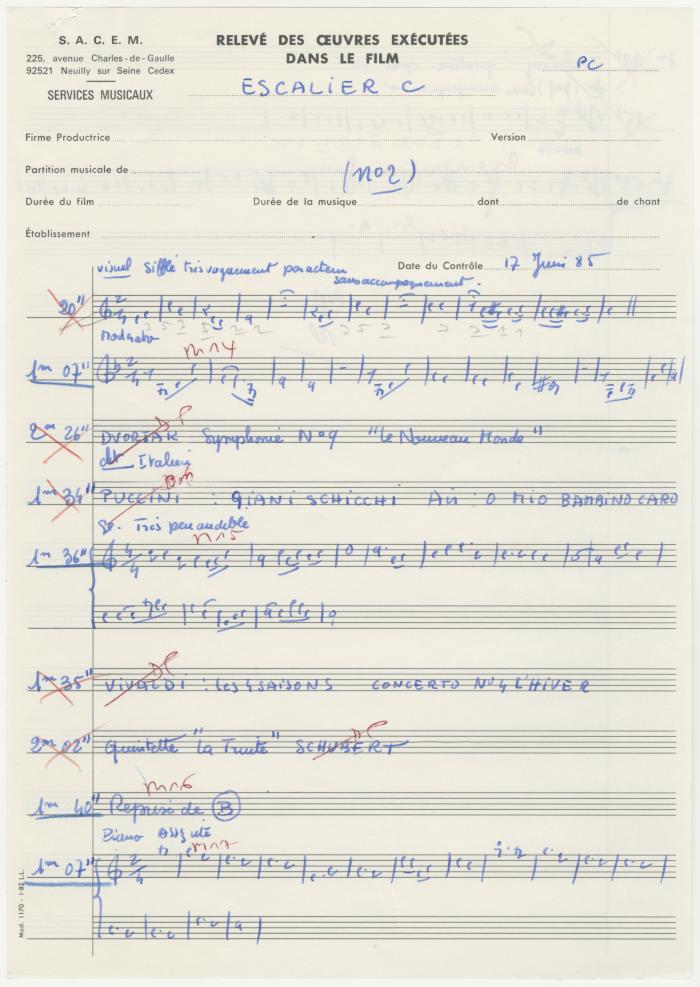 S. A. C. E. M.
225, avenue Charles-de-Gaulle
92521 Neuilly sur Seine Cedex
SERVICES MUSICAUX
RELEVÉ DES ŒUVRES EXÉCUTÉES
DANS LE FILM
PC
ESCALIER C
Firme Productrice
Version
Partition musicale de
(No 2)
Durée du film
Durée de la musique
dont
de chant
Établissement
Date du Contrôle 17 Juin 85
visuel Sifflé très vaguement par acteur
sans accompagnement.
20"
Moderato
m 14
1m 07"
2m 26" DVORJAK Symphonie No 9 "Le Nouveau Monde"
DP
Italien
Bm
1m 34" PUCCINI : GIANI SCHICCHI Air : O MIO BAMBINO CARO
Très peu audible
m 15
1m 36"
DP
1m 35" VIVALDI : LES 4 SAISONS CONCERTO No 4 L'HIVER
DP
2m 02" Quintette "La Truite" SCHUBERT
m 16
1m 40" Reprise de B
Piano
m 17
1m 07"
Mod. 1170 - 1-82 I.L.